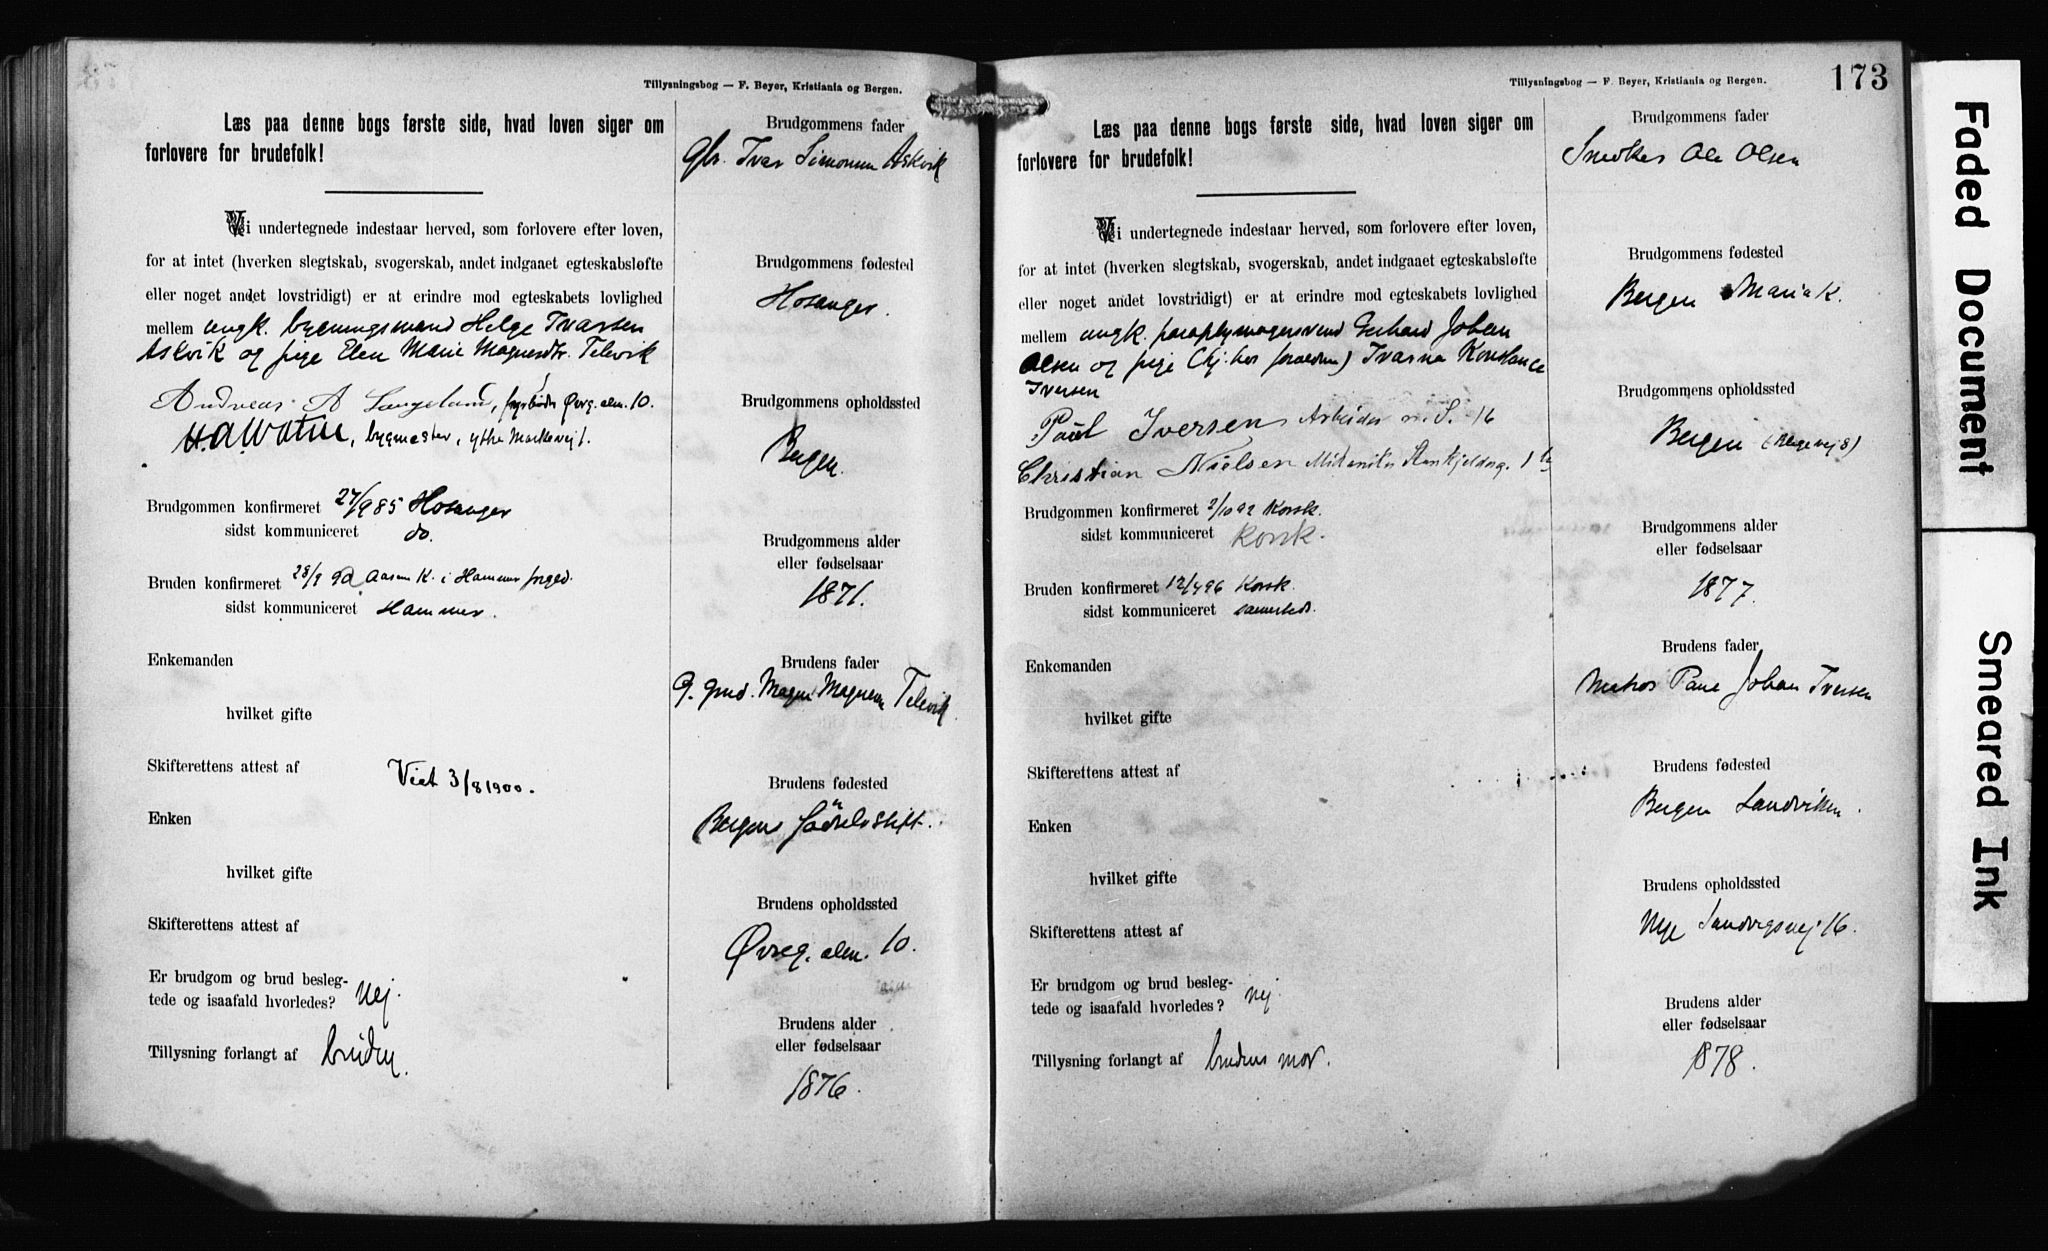 Tillysningsbog — F. Beyer, Kristiania og Bergen.
Læs paa denne bogs første side, hvad loven siger om
forlovere for brudefolk!
Vi undertegnede indestaar herved, som forlovere efter loven,
for at intet (hverken slegtskab, svogerskab, andet indgaaet egteskabsløfte
eller noget andet lovstridigt) er at erindre mod egteskabets lovlighed
mellem ungk. bygningsmand Helge Ivarsen
Askvik og pige Elen Marie Magnesdtr. Televik
Andreas A Øvreg. alm. 10.
bygmester, ytre Markevej 1.
Brudgommen konfirmeret 27/9 85 Hosanger
sidst kommuniceret do.
Bruden konfirmeret 28/9 90 Aasene K. i Hammer
sidst kommuniceret Hammer.
Enkemanden
hvilket gifte
Skifterettens attest af
Viet 3/8 1900.
Enken
hvilket gifte
Skifterettens attest af
Er brudgom og brud besleg-
tede og isaafald hvorledes? Nej.
Tillysning forlangt af bruden.
Brudgommens fader
Gbr. Ivar Simonsen Askvik
Brudgommens fødested
Hosanger.
Brudgommens opholdssted
Bergen.
Brudgommens alder
eller fødselsaar
1871.
Brudens fader
G. gmd. Magne Magnesen Televik.
Brudens fødested
Bergens Fødselsstift.
Brudens opholdssted
Øvreg. alm. 10.
Brudens alder
eller fødselsaar
1876.
Tillysningsbog — F. Beyer, Kristiania og Bergen.
173
Læs paa denne bogs første side, hvad loven siger om
forlovere for brudefolk!
Vi undertegnede indestaar herved, som forlovere efter loven,
for at intet (hverken slegtskab, svogerskab, andet indgaaet egteskabsløfte
eller noget andet lovstridigt) er at erindre mod egteskabets lovlighed
mellem ungk. paraplymagersvend Gerhard Johan
Olsen og pige (hj. hos forældrene) Ivarna Konstance
Iversen
Paul Iversen Arbeider N. S. 16
Christian Nielsen
Brudgommen konfirmeret 2/10 92 Korsk.
sidst kommuniceret Korsk.
Bruden konfirmeret 12/4 96 Korsk.
sidst kommuniceret sammesteds.
Enkemanden
hvilket gifte
Skifterettens attest af
Enken
hvilket gifte
Skifterettens attest af
Er brudgom og brud besleg-
tede og isaafald hvorledes? Nej.
Tillysning forlangt af brudens mor.
Brudgommens fader
Snedker Ole Olsen
Brudgommens fødested
Bergen Mariak.
Brudgommens opholdssted
Bergen
Brudgommens alder
eller fødselsaar
1877.
Brudens fader
Matros Johan Iversen
Brudens fødested
Bergen Sandviken.
Brudens opholdssted
Nye Sandvigsvej 16.
Brudens alder
eller fødselsaar
1878.
Faded Document
Smeared Ink